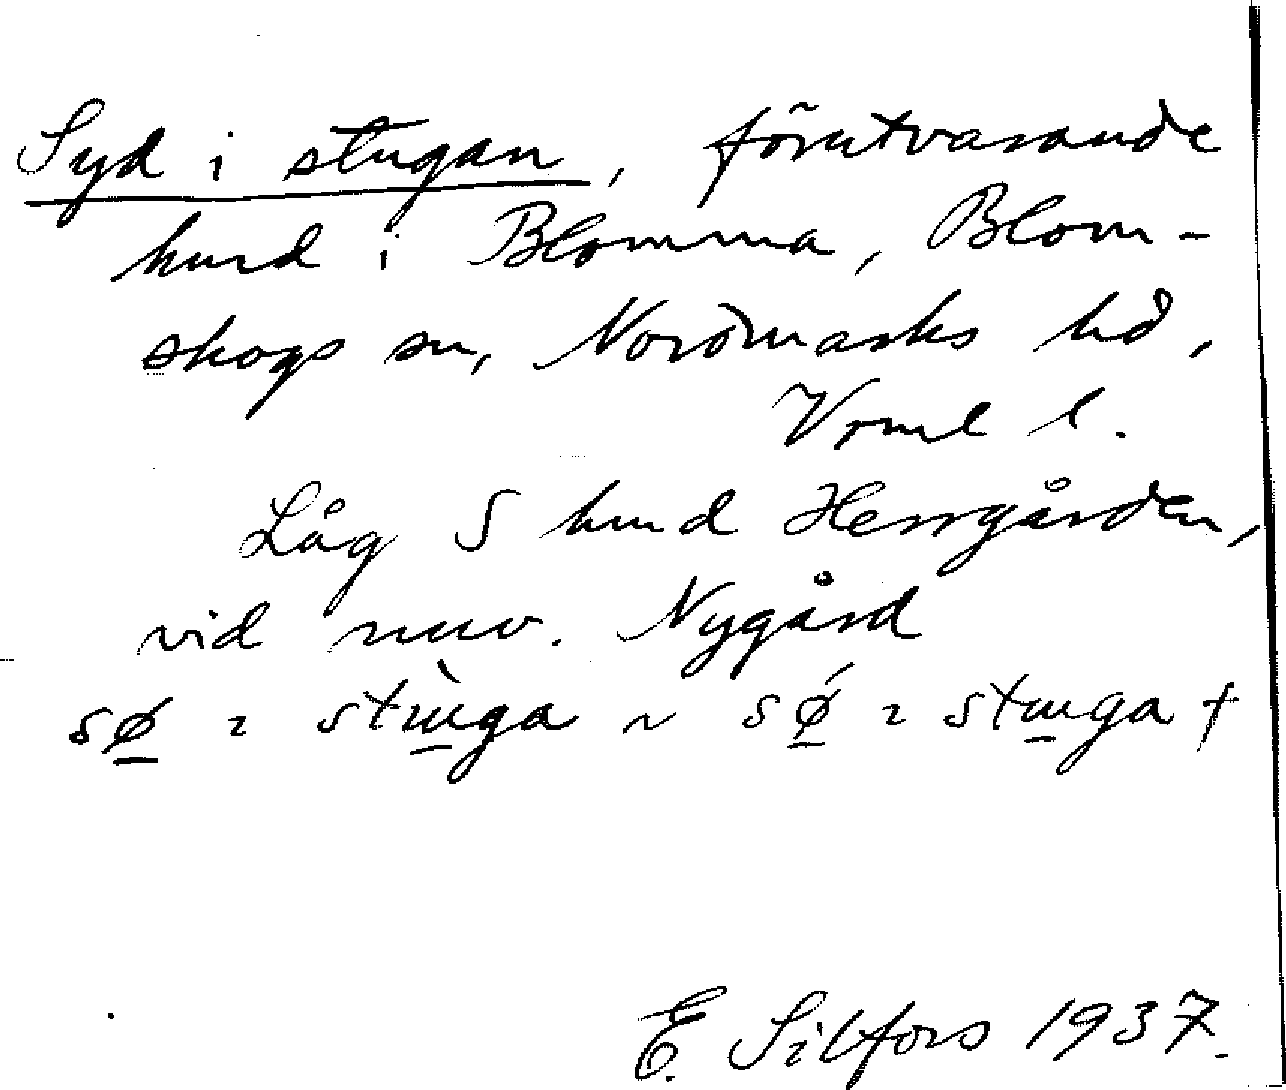 Syd i stugan, förutvarande
hmd i Blomma, Blom-
skogs sn, Nordmarks hd,
Vrml l.
Låg S hmd Herrgården,
vid nuv. Nygård
sø̱ ı stɯ̱̀ga ~ sǿ̱ ı stɯ̱ga †
E. Silfors 1937.